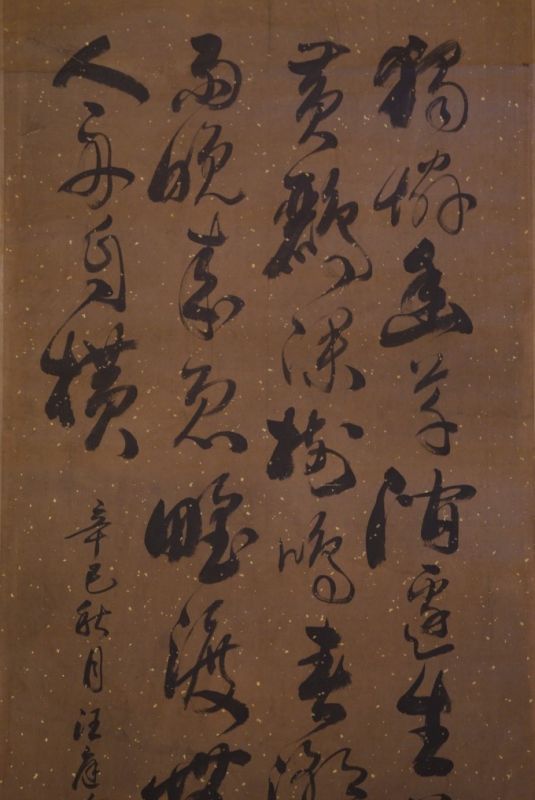 獨憐幽草澗邊生
黃鸝深樹鳴春潮
雨晚來急野渡無
人舟自橫
辛巳秋月汪